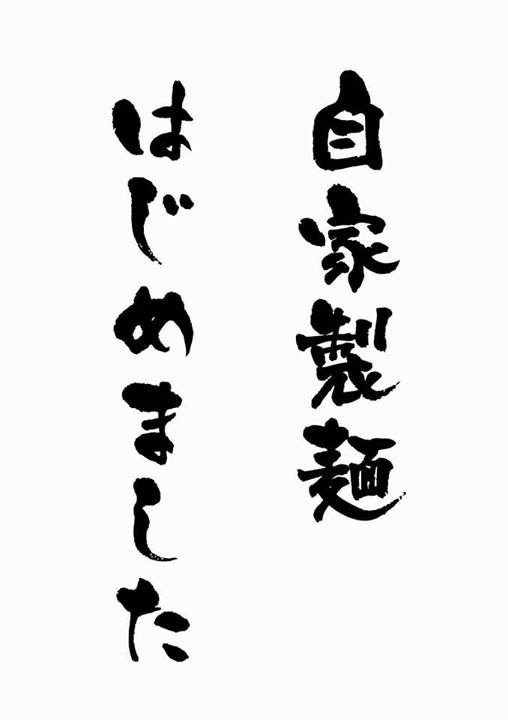 自家製麺
はじめました